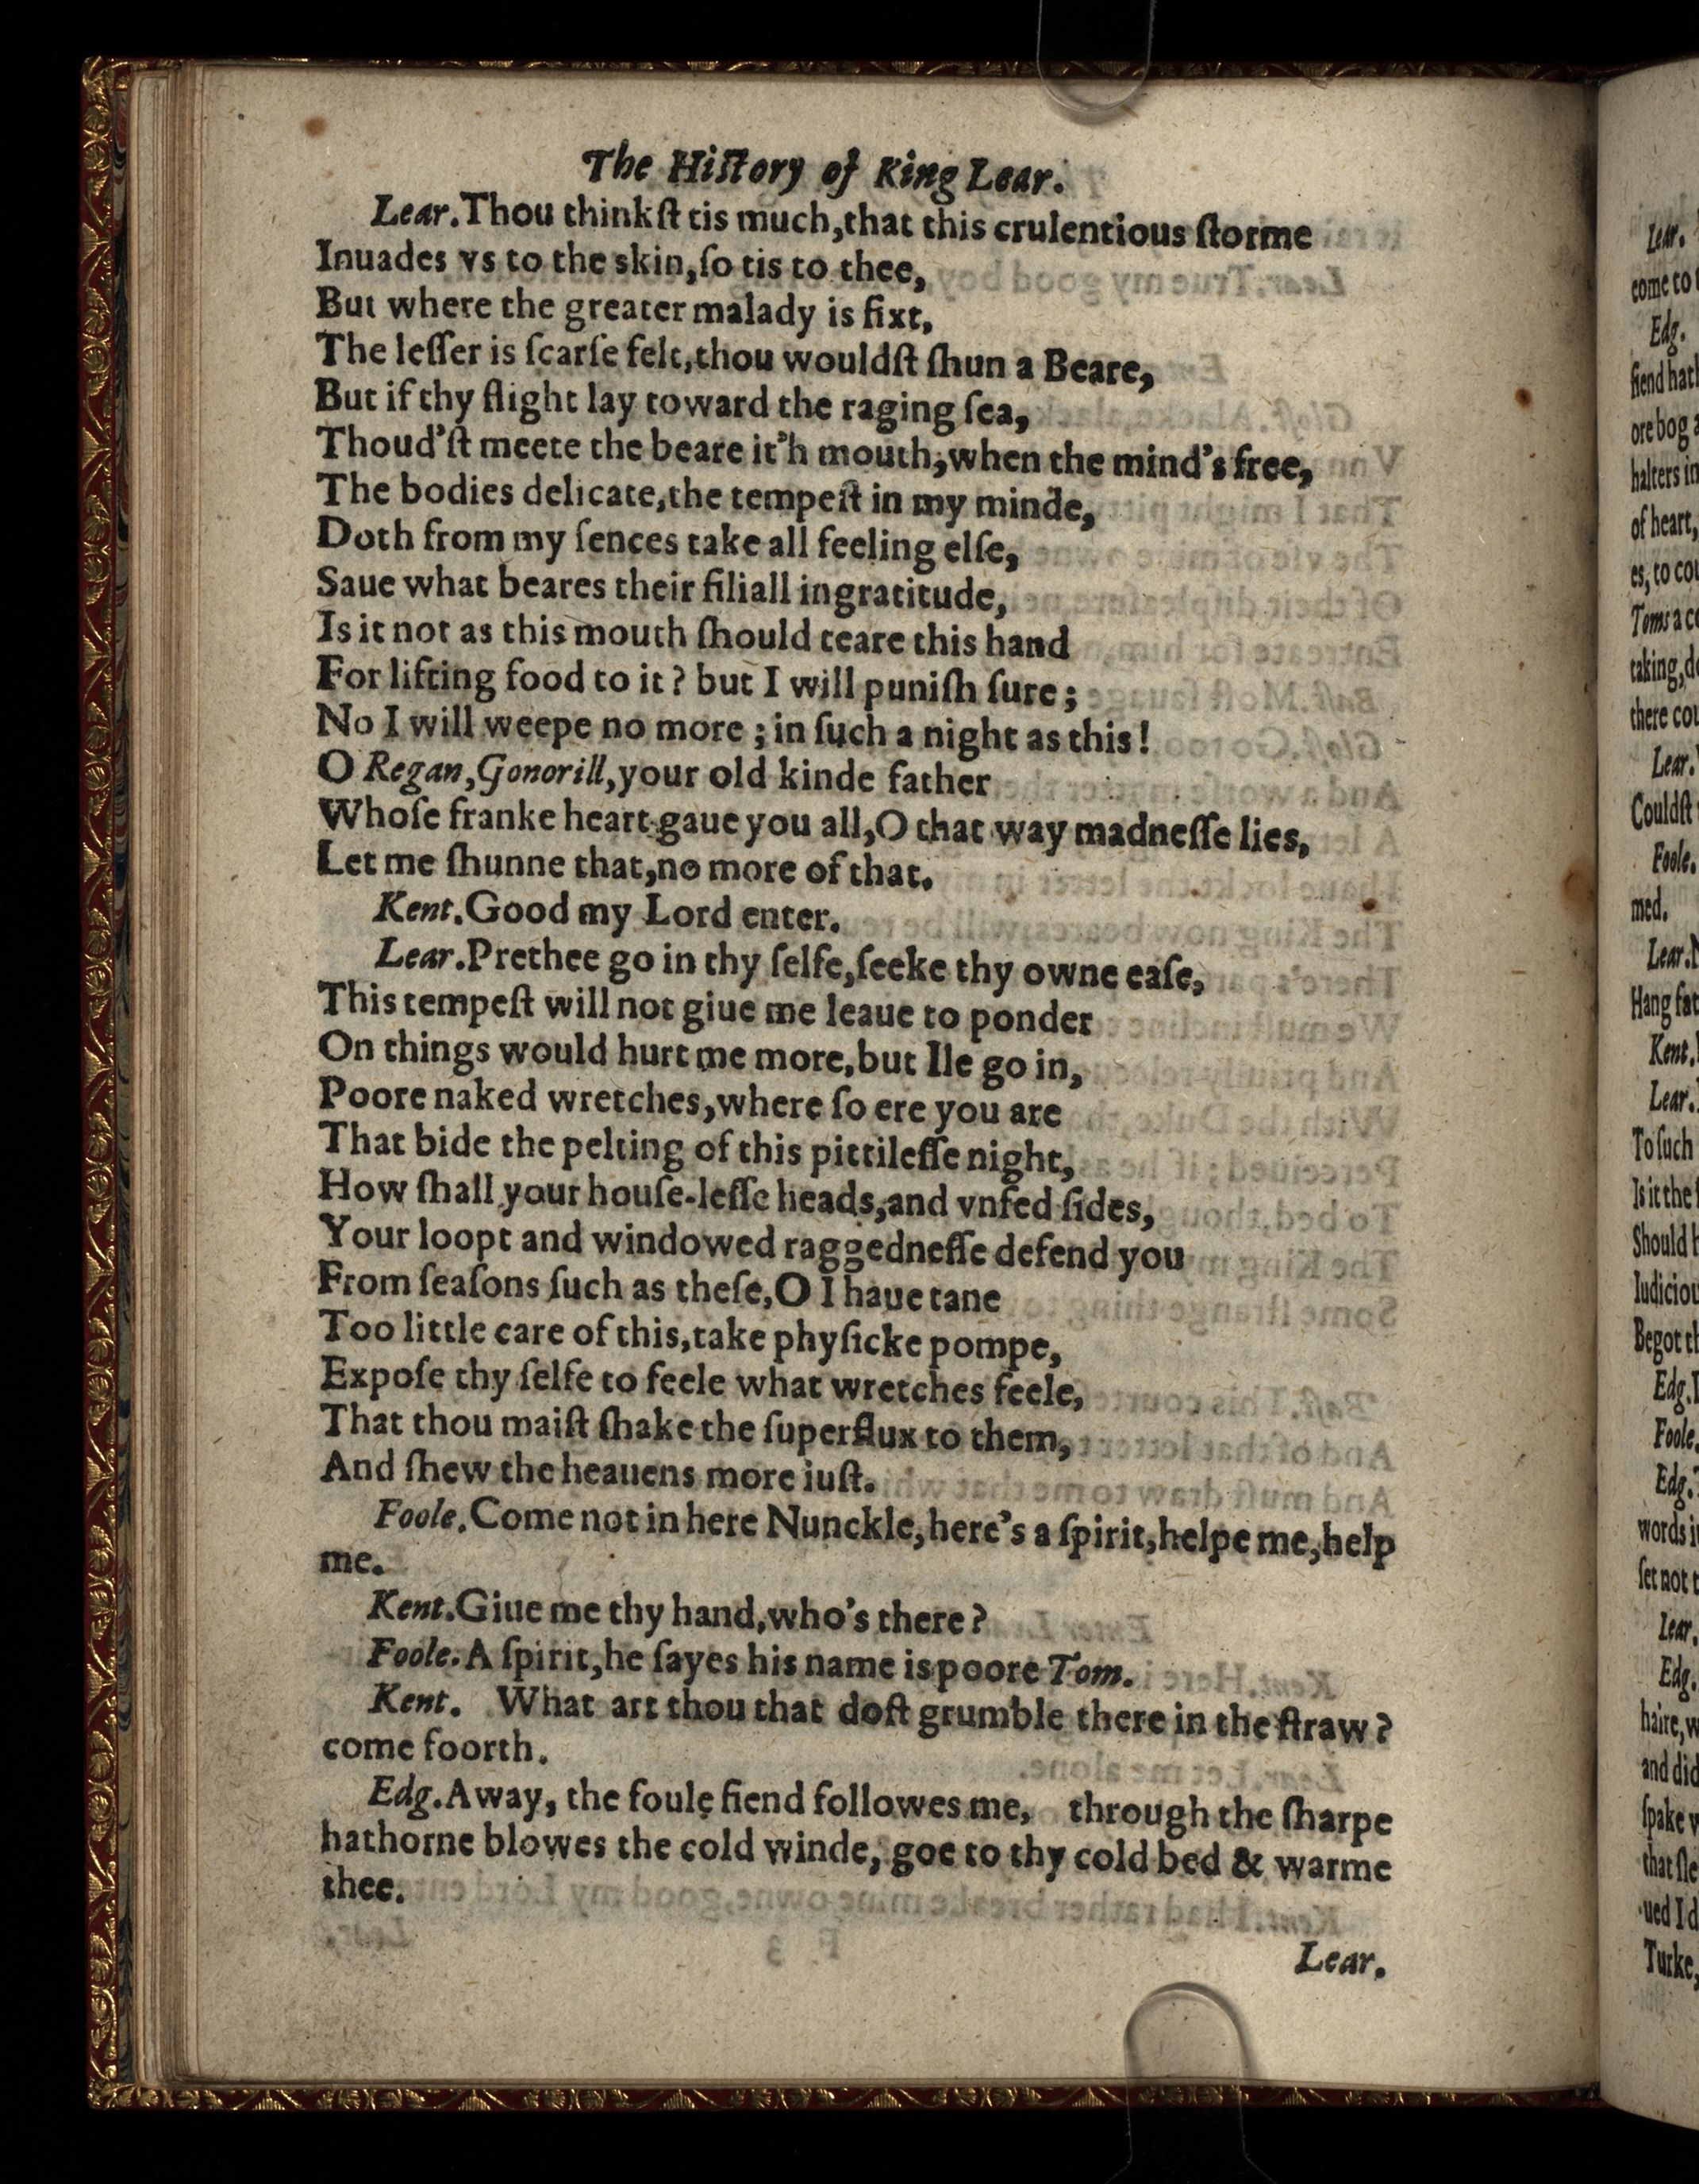 The Hiſtory of King Lear.
Lear.Thou thinkſt tis much,that this crulentious ſtorme
Inuades vs to the skin,ſo tis to thee,
But where the greater malady is fixt,
The leſſer is ſcarſe felt,thou wouldſt ſhun a Beare,
But if thy flight lay toward the raging ſea,
Thoud'ſt meete the beare it'h mouth,when the mind's free,
The bodies delicate,the tempeſt in my minde,
Doth from my ſences take all feeling elſe,
Saue what beares their filiall ingratitude,
Is it not as this mouth ſhould teare this hand
For lifting food to it? but I will puniſh ſure;
No I will weepe no more; in ſuch a night as this!
O Regan,Gonorill,your old kinde father
Whoſe franke heart gaue you all,O that way madneſſe lies,
Let me ſhunne that,no more of that.
Kent.Good my Lord enter.
Lear.Prethee go in thy ſelfe,ſeeke thy owne eaſe,
This tempeſt will not giue me leaue to ponder
On things would hurt me more,but Ile go in,
Poore naked wretches,where ſo ere you are
That bide the pelting of this pittileſſe night,
How ſhall your houſe-leſſe heads,and vnfed ſides,
Your loopt and windowed raggedneſſe defend you
From ſeaſons ſuch as theſe,O I haue tane
Too little care of this,take phyſicke pompe,
Expoſe thy ſelfe to feele what wretches feele,
That thou maiſt ſhake the ſuperflux to them,
And ſhew the heauens more iuſt.
Foole.Come not in here Nunckle,here's a ſpirit,helpe me,help
me.
Kent.Giue me thy hand,who's there?
Foole.A ſpirit,he ſayes his name is poore Tom.
Kent. What art thou that doſt grumble there in the ſtraw?
come foorth.
Edg.Away, the foule fiend followes me, through the ſharpe
hathorne blowes the cold winde, goe to thy cold bed & warme
thee.
Lear.
Lear.
come to
Edg.
fiend hath
ore bog
halters in
of heart,
es, to
Toms a
taking,
there
Lear.
Couldſt
Foole.
med.
Lear.
Hang
Kent.
Lear.
To ſuch
Is it the
Should
Begot
Edg.
Foole.
Edg.
words
ſet not
Lear.
Edg.
haire,
and did
ſpake
that
ued I
Turke,